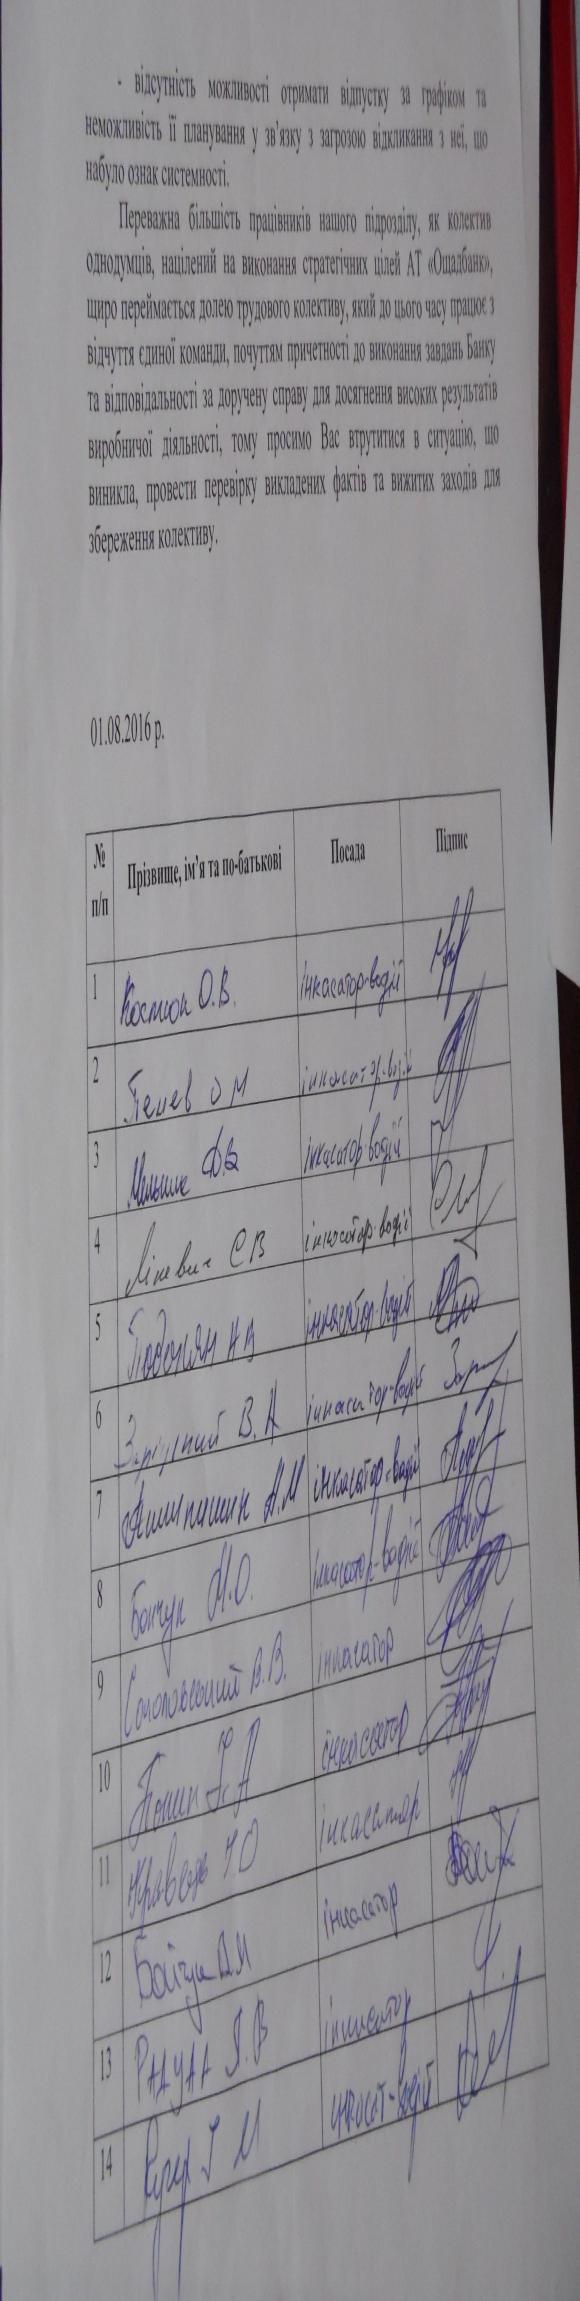 - відсутність можливості отримати відпустку за графіком та
неможливість її планування у зв'язку з загрозою відкликання з неї, що
набуло ознак системності.
Переважна більшість працівників нашого підрозділу, як колектив
однодумців, націлений на виконання стратегічних цілей АТ «Ощадбанк»,
щиро переймається долею трудового колективу, який до цього часу працює з
відчуття єдиної команди, почуттям причетності до виконання завдань Банку
та відповідальності за доручену справу для досягнення високих результатів
виробничої діяльності, тому просимо Вас втрутитися в ситуацію, що
виникла, провести перевірку викладених фактів та вжитих заходів для
збереження колективу.
01.08.2016 р.
№ п/п Прізвище, ім'я та по-батькові Посада Підпис
1 Костюк О.В. інкасатор-водій
2 Пенев О М інкасатор-водій
3 Мельник ДВ інкасатор водій
4 СВ інкасатор-водій
5 інкасатор-водій
6 В. А інкасатор-водій
7 А.М інкасатор-водій
8 М.О. інкасатор-водій
9 Соколовський В.В. інкасатор
10 інкасатор
11 інкасатор
12 Бойчук інкасатор
13 інкасатор
14 інкасат-водій